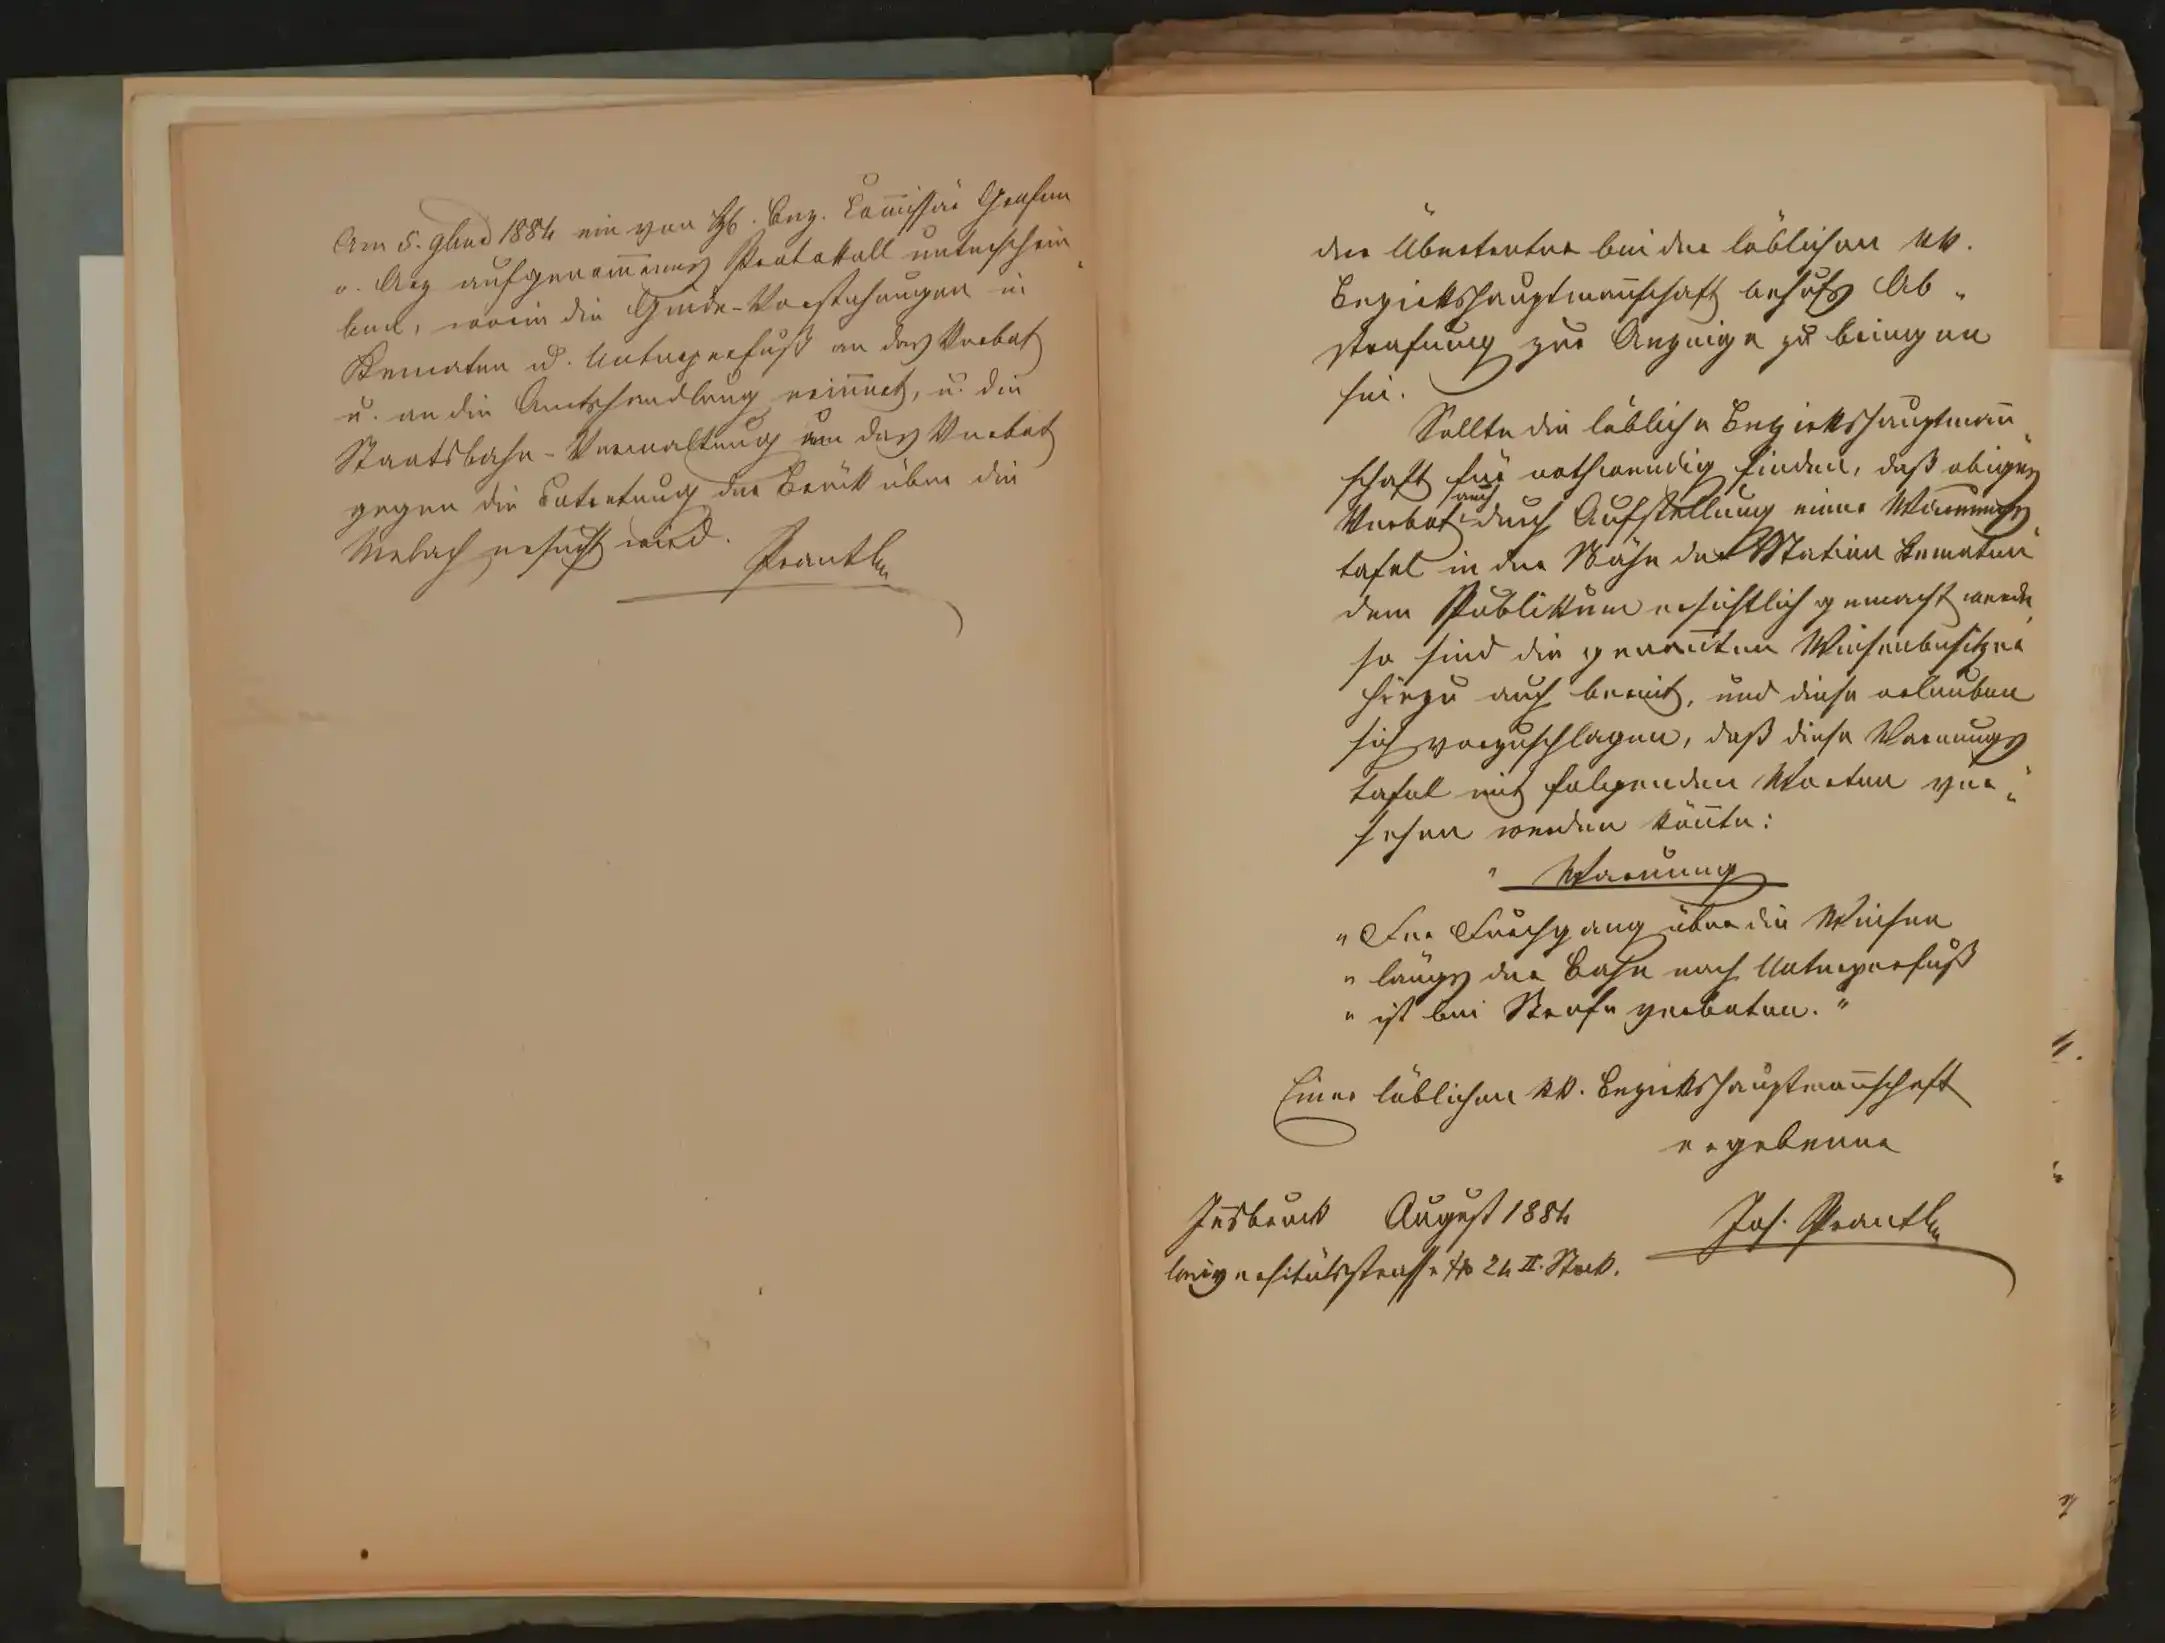 Am 5. 9ber 1884 ein von H. Bez. Commissär Grafen
v. Arz aufgenommenes Protokoll unterschrie-
ben, worin die Gmde-Vorstehungen in
Kematen u. Unterperfuß an das Verbot
u. an die Amtshandlung erinnert, u. die
Staatsbahn-Verwaltung um das Verbot
gegen die Betretung der Brück über die
Melach ersucht wird.
Prantl
der Übertreter bei der löblichen kk.
Bezirkshauptmannschaft behufs Ab-
strafung zur Anzeige zu bringen
sei.
Sollte die löbliche Bezirkshauptmann-
schaft für nothwendig finden, daß obiges
Verbot auch durch Aufstellung einer Warnungs-
tafel in der Nähe der Station Kematen
dem Publikum ersichtlich gemacht werde,
so sind die genannten Wiesenbesitzer
hiezu auch bereit, und diese erlauben
sich vorzuschlagen, daß diese Warnungs-
tafel mit folgenden Worten ver-
sehen werden könnte:
" Warnung
" Der Durchgang über die Wiesen
" längs der Bahn nach Unterperfuß
" ist bei Strafe verboten. "
Einer löblichen kk. Bezirkshauptmannschaft
ergebenne
Innsbruck August 1884 Jos. Prantl
Universitätsstrasse No 24 II. Stock.